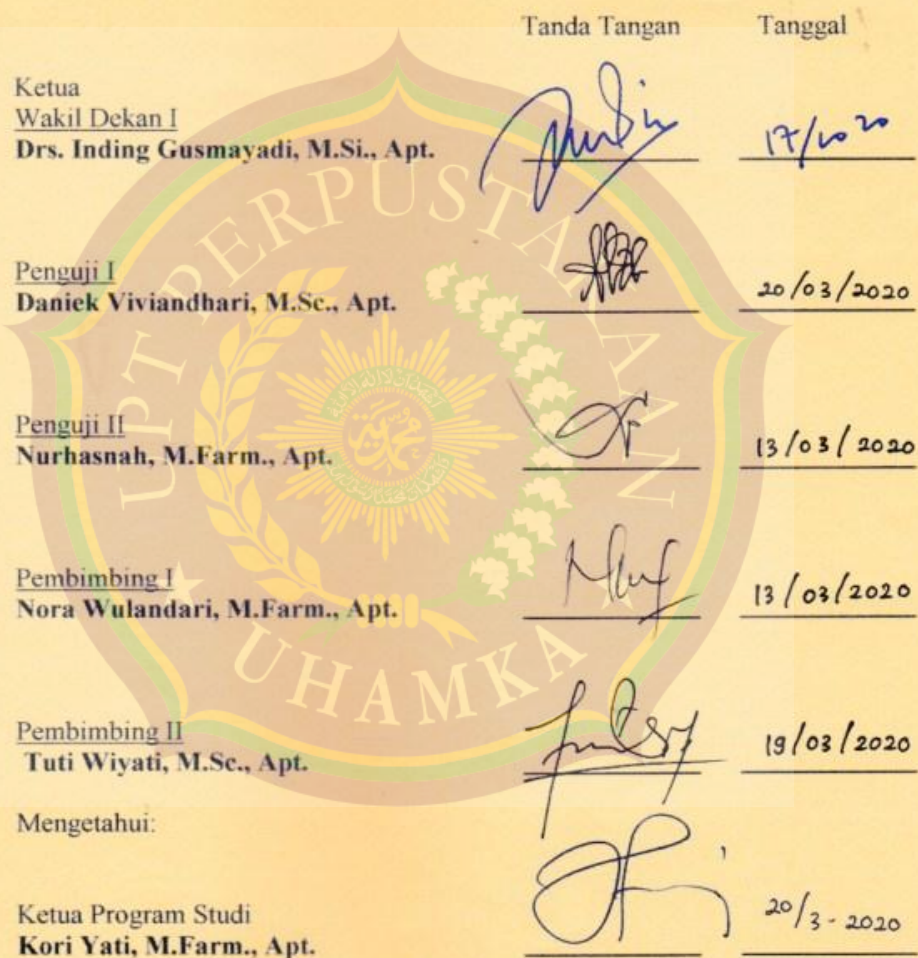 Tanda Tangan Tanggal
Ketua
Wakil Dekan I
Drs. Inding Gusmayadi, M.Si., Apt.
Penguji I
Daniek Viviandhari, M.Sc., Apt. 20/03/2020
Penguji II
Nurhasnah, M.Farm., Apt. 13/03/2020
Pembimbing I
Nora Wulandari, M.Farm., Apt. 13/03/2020
Pembimbing II
Tuti Wiyati, M.Sc., Apt. 19/03/2020
Mengetahui:
Ketua Program Studi 20/3-2020
Kori Yati, M.Farm., Apt.
UPT PERPUSTAKAAN
UHAMKA